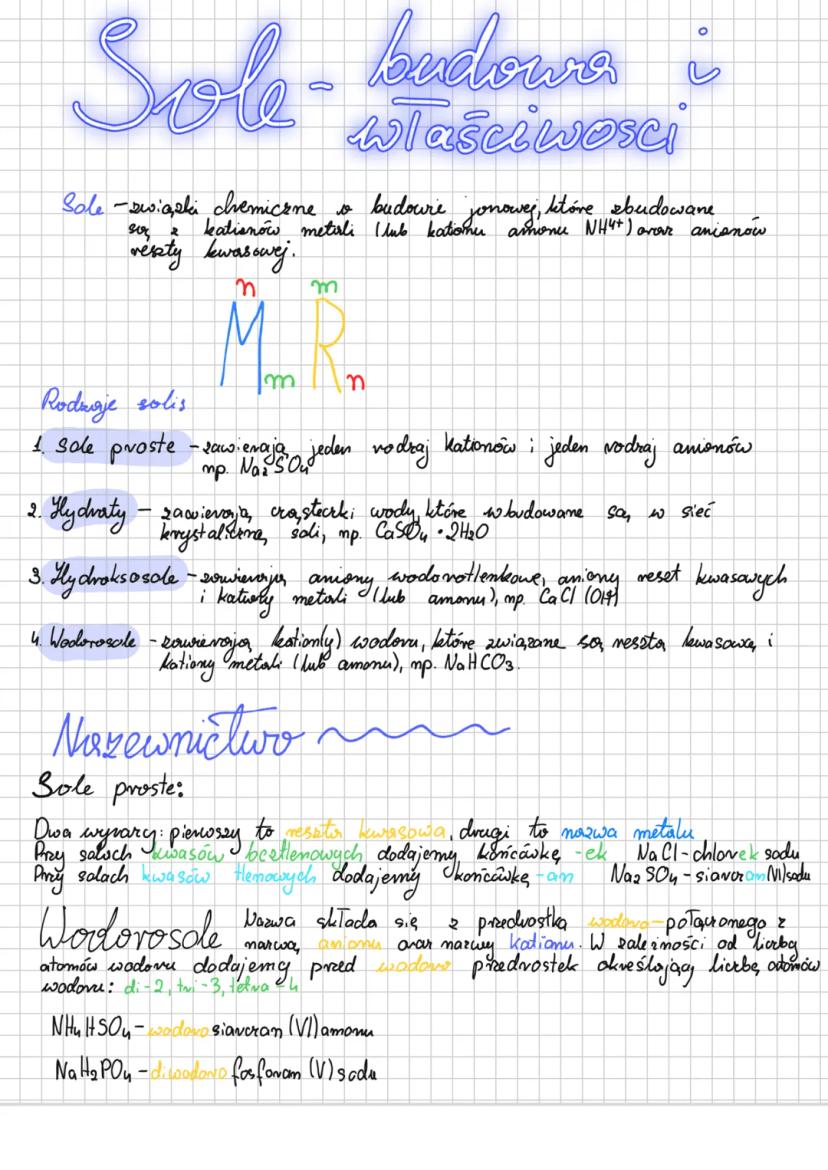 Sole - budowa i
właściwości
Sole - związki chemiczne o budowie jonowej, które zbudowane
są z kationów metali (lub kationu amonu NH4+) oraz anionów
reszty kwasowej.
n m
M R
m n
Rodzaje solis
1. Sole proste - zawierają jeden rodzaj kationów i jeden rodzaj anionów
np. Na2SO4
2. Hydraty - zawierają cząsteczki wody, które wbudowane są w sieć
krystaliczną soli, np. CaSO4 • 2H2O
3. Hydroksosole - zawierają aniony wodorotlenkowe, aniony reszt kwasowych
i kationy metali (lub amonu), np. CaCl(OH)
4. Wodorosole - zawierają kation(y) wodoru, które związane są resztą kwasową i
kationy metali (lub amonu), np. NaHCO3.
Nazewnictwo
Sole proste:
Dwa wyrazy: pierwszy to reszta kwasowa, drugi to nazwa metalu
Przy solach kwasów beztlenowych dodajemy końcówkę -ek NaCl - chlorek sodu
Przy solach kwasów tlenowych dodajemy końcówkę -an Na2SO4 - siarczan(VI) sodu
Wodorosole Nazwa składa się z przedrostka wodoro- połączonego z
nazwą anionu oraz nazwy kationu. W zależności od liczby
atomów wodoru dodajemy przed wodoro przedrostek określający liczbę atomów
wodoru: di-2, tri-3, tetra-4
NH4HSO4 - wodorosiarczan (VI) amonu
NaH2PO4 - diwodorofosforan (V) sodu